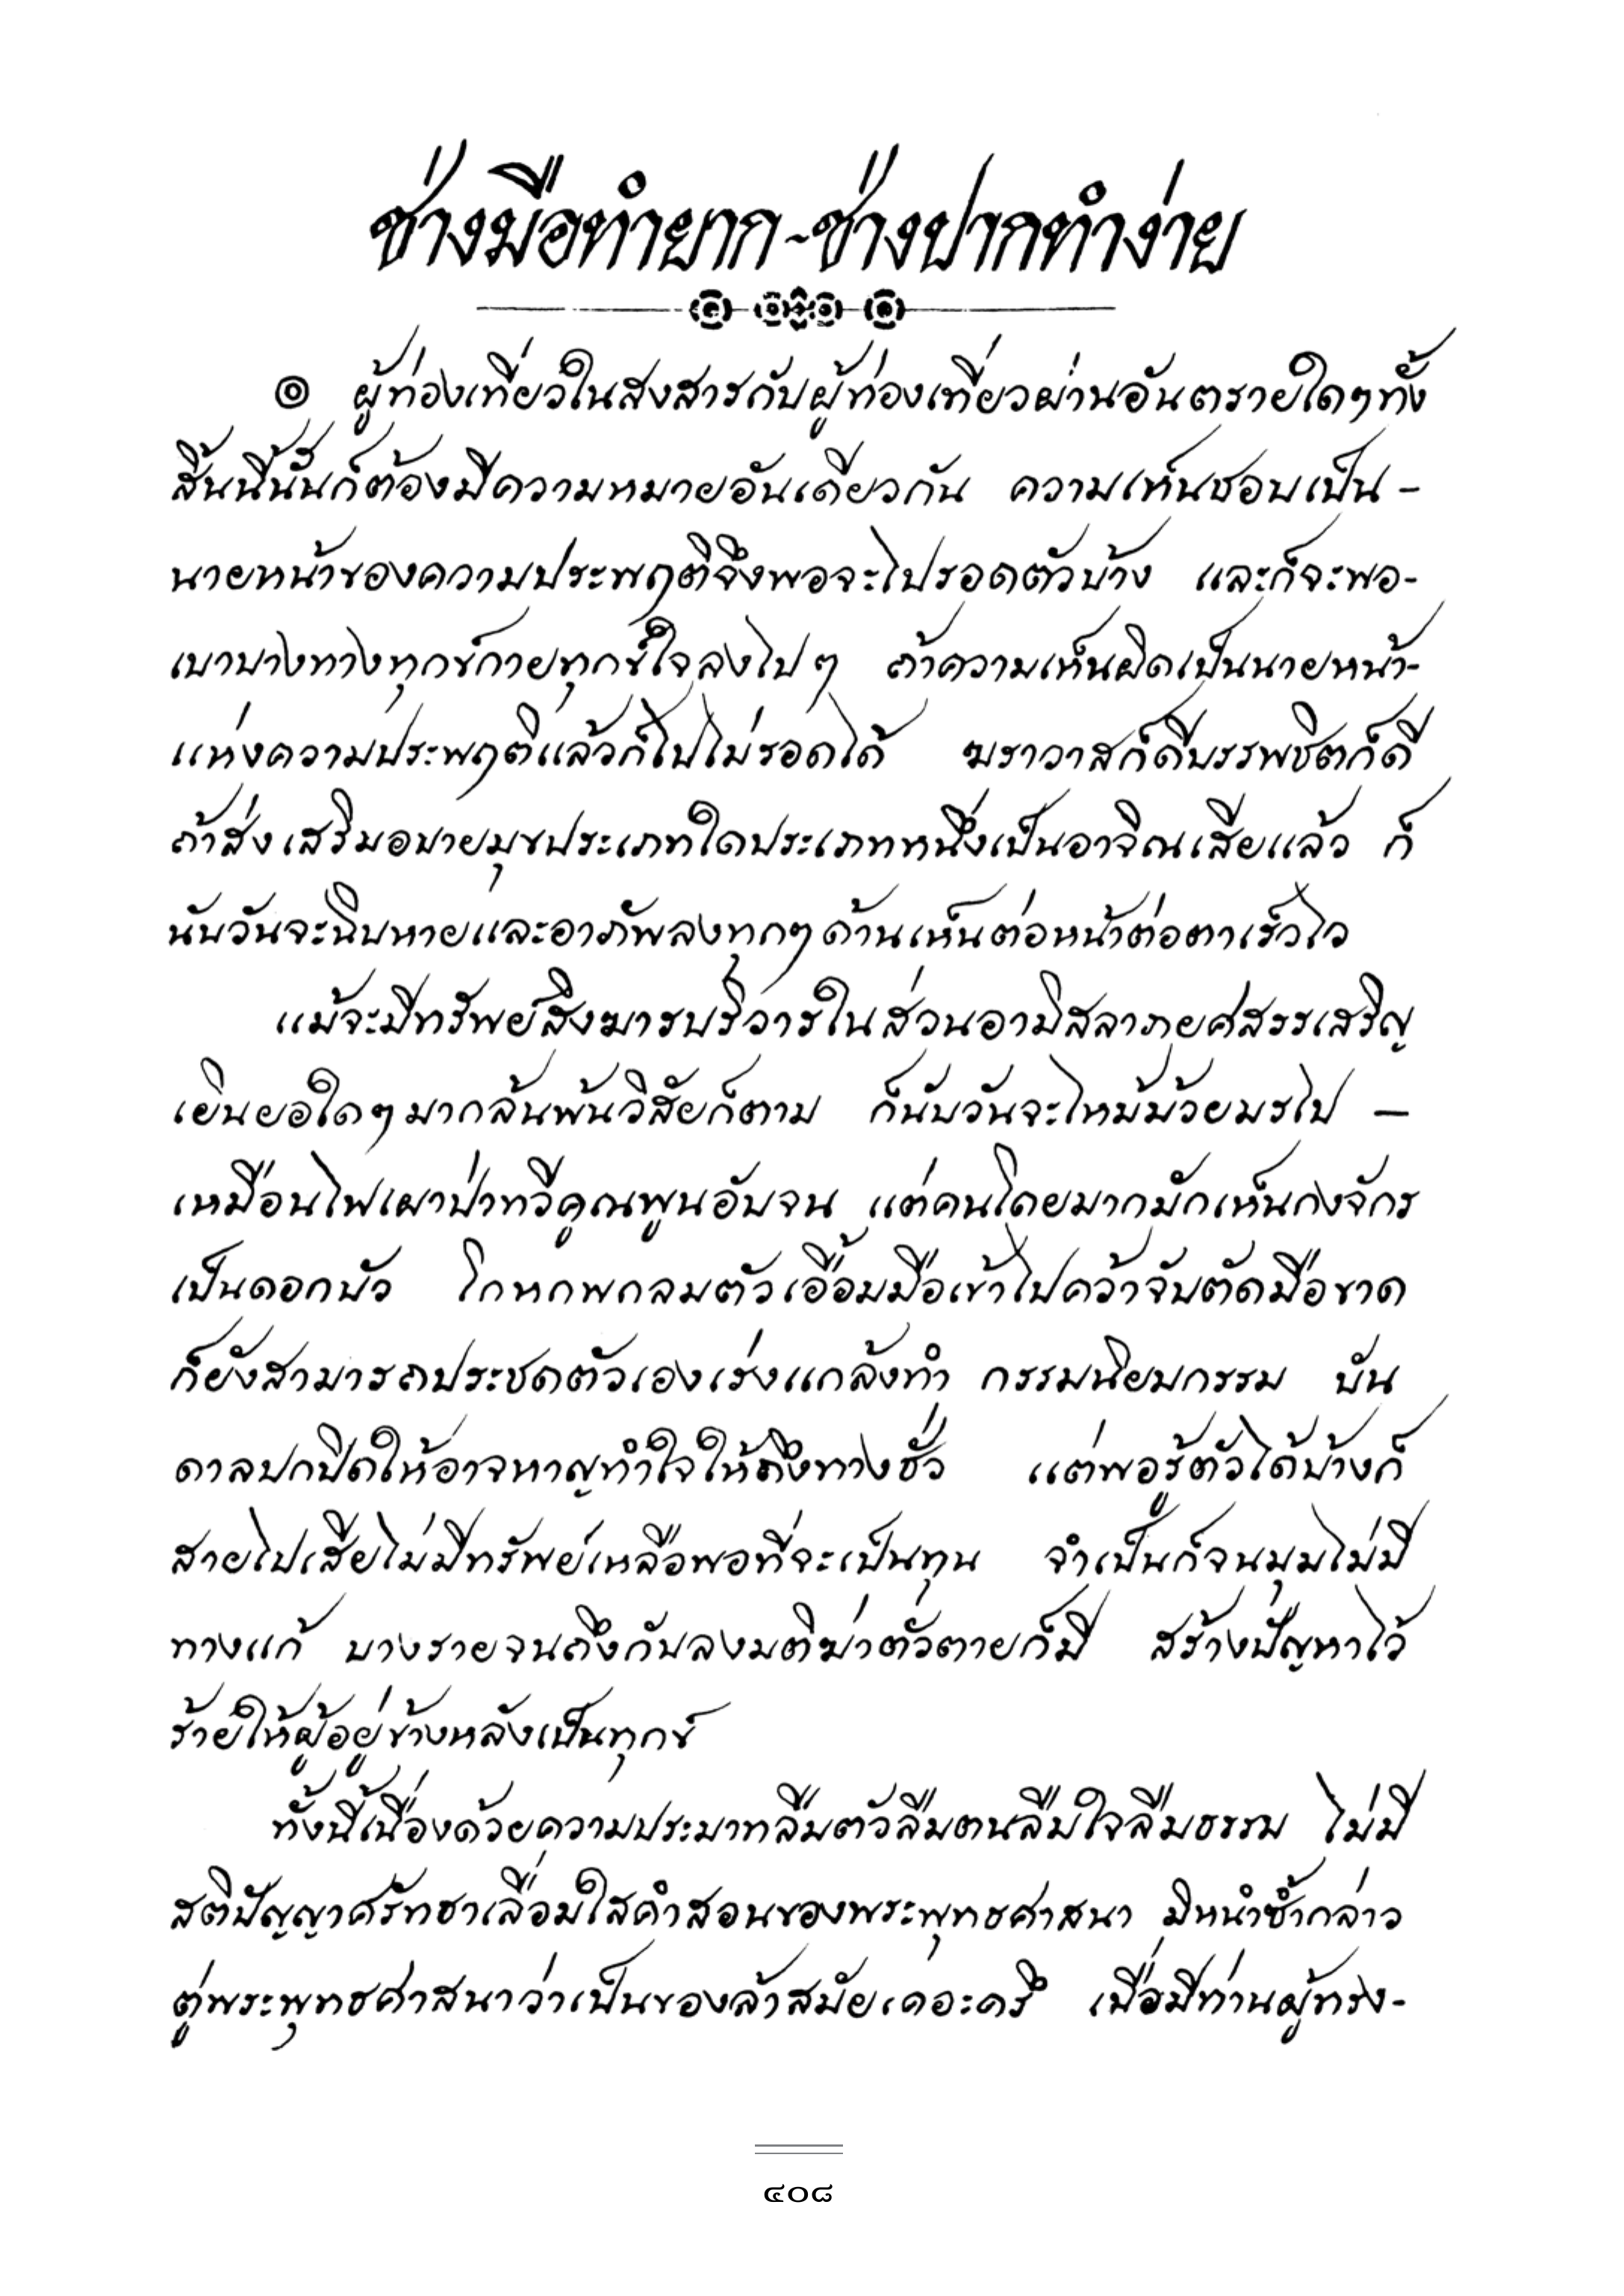 ช่างมือทำยาก-ช่างปากทำง่าย
๏ ผู้ท่องเที่ยวในสงสารกับผู้ท่องเที่ยวผ่านอันตรายใดๆทั้ง
สิ้นนี้นั้นก็ต้องมีความหมายอันเดียวกัน ความเห็นชอบเป็น -
นายหน้าของความประพฤติจึงพอจะไปรอดตัวบ้าง และก็จะพอ-
เบาบางทางทุกข์กายทุกข์ใจลงไปๆ ถ้าความเห็นผิดเป็นนายหน้า-
แห่งความประพฤติแล้วก็ไปไม่รอดได้ ฆราวาสก็ดีบรรพชิตก็ดี
ถ้าส่งเสริมอบายมุขประเภทใดประเภทหนึ่งเป็นอาจิณเสียแล้ว ก็
นับวันจะฉิบหายและอาภัพลงทุกๆด้านเห็นต่อหน้าต่อตาเร็วไว
แม้จะมีทรัพย์สิ่งฆารบริวารในส่วนอามิสลาภยศสรรเสริญ
เยินยอใดๆมากล้นพ้นวิสัยก็ตาม ก็นับวันจะไหม้ม้วยมรไป -
เหมือนไฟเผาป่าทวีคูณพูนอับจน แต่คนโดยมากมักเห็นกงจักร
เป็นดอกบัว โกหกพกลมตัวเอื้อมมือเข้าไปคว้าจับตัดมือขาด
ก็ยังสามารถประชดตัวเองเร่งแกล้งทำ กรรมนิยมกรรม บัน
ดาลปกปิดให้อาจหาญทำใจให้ถึงทางชั่ว แต่พอรู้ตัวได้บ้างก็
สายไปเสียไม่มีทรัพย์เหลือพอที่จะเป็นทุน จำเป็นก็จนมุมไม่มี
ทางแก้ บางรายจนถึงกับลงมติฆ่าตัวตายก็มี สร้างปัญหาไว้
ร้ายให้ผู้อยู่ข้างหลังเป็นทุกข์
ทั้งนี้เนื่องด้วยความประมาทลืมตัวลืมตนลืมใจลืมธรรม ไม่มี
สติปัญญาศรัทธาเลื่อมใสคำสอนของพระพุทธศาสนา มิหนำซ้ำกล่าว
ตู่พระพุทธศาสนาว่าเป็นของล้าสมัยเคอะครึ เมื่อมีท่านผู้ทรง-
๔๐๘